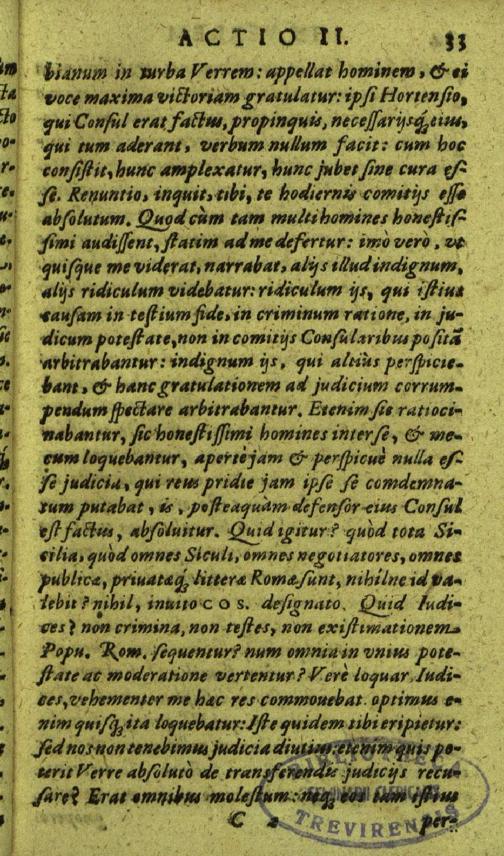 ACTIO II. 33
bianum in turba Verrem: appellat hominem, & ei
voce maxima victoriam gratulatur: ipsi Hortensio,
qui Consul erat factus, propinquis, necessarijsq́; eius,
qui tum aderant, verbum nullum facit: cum hoc
consistit, hunc amplexatur, hunc jubet sine cura es-
se. Renuntio, inquit, tibi, te hodiernis comitijs esse
absolutum. Quod cùm tam multi homines honestis-
simi audissent, statim ad me defertur: imò verò, vt
quisque me viderat, narrabat, alijs illud indignum,
alijs ridiculum videbatur: ridiculum ijs, qui istius
causam in testium fide, in criminum ratione, in ju-
dicum potestate, non in comitijs Consularibus positā
arbitrabantur: indignum ijs, qui altiùs perspicie-
bant, & hanc gratulationem ad judicium corrum-
pendum spectare arbitrabantur. Etenim sic ratioci-
nabantur, sic honestissimi homines inter se, & me-
cum loquebantur, apertè jam & perspicuè nulla es-
se judicia, qui reus pridie jam ipse se comdemna-
tum putabat, is, posteaquàm defensor eius Consul
est factus, absoluitur. Quid igitur? quòd tota Si-
cilia, quòd omnes Siculi, omnes negotiatores, omnes
publicæ, priuatæq́; litteræ Romæ sunt, nihilne id va-
lebit? nihil, inuito COS. designato. Quid Iudi-
ces? non crimina, non testes, non existimationem
Popu. Rom. sequentur? num omnia in vnius pote-
state ac moderatione vertentur? Verè loquar Iudi-
ces, vehementer me hæc res commouebat. optimus e-
nim quisq́; ita loquebatur: Iste quidem tibi eripietur:
sed nos non tenebimus judicia diutius: etenim quis po-
terit Verre absolutò de transferendis judicijs recu-
sare? Erat omnibus molestum: neq́; eos tam istius
C 2 per-
BIBLIOTHECA
SEMINARII CLERICALIS
TREVIRENSIS